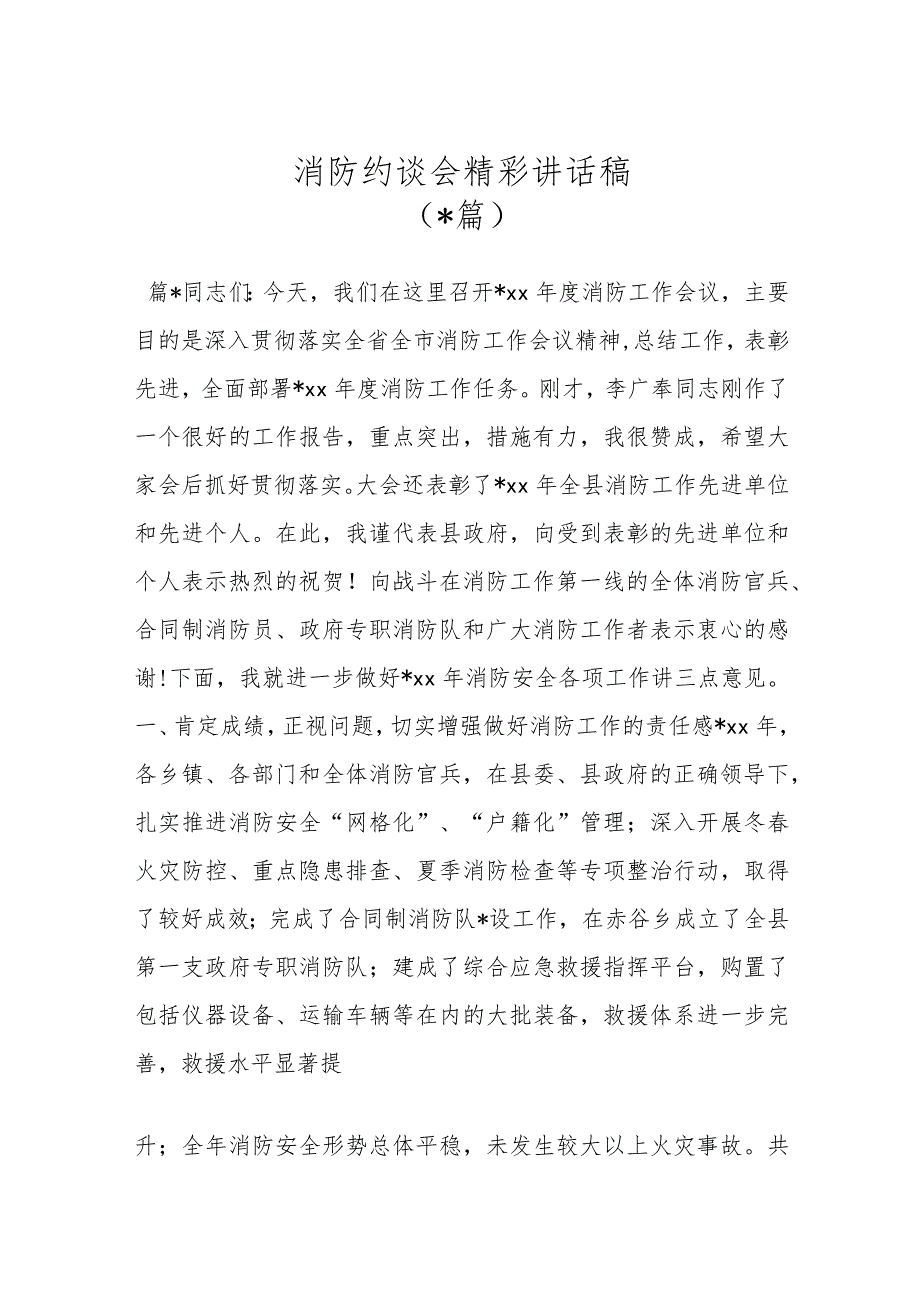 消防约谈会精彩讲话稿
（*篇）
篇*同志们：今天，我们在这里召开*xx 年度消防工作会议，主要
目的是深入贯彻落实全省全市消防工作会议精神,总结工作，表彰
先进，全面部署*xx 年度消防工作任务。刚才，李广奉同志刚作了
一个很好的工作报告，重点突出，措施有力，我很赞成，希望大
家会后抓好贯彻落实。大会还表彰了*xx 年全县消防工作先进单位
和先进个人。在此，我谨代表县政府，向受到表彰的先进单位和
个人表示热烈的祝贺！向战斗在消防工作第一线的全体消防官兵、
合同制消防员、政府专职消防队和广大消防工作者表示衷心的感
谢!下面，我就进一步做好*xx 年消防安全各项工作讲三点意见。
一、肯定成绩，正视问题，切实增强做好消防工作的责任感*xx 年，
各乡镇、各部门和全体消防官兵，在县委、县政府的正确领导下，
扎实推进消防安全“网格化”、“户籍化”管理；深入开展冬春
火灾防控、重点隐患排查、夏季消防检查等专项整治行动，取得
了较好成效；完成了合同制消防队*设工作，在赤谷乡成立了全县
第一支政府专职消防队；建成了综合应急救援指挥平台，购置了
包括仪器设备、运输车辆等在内的大批装备，救援体系进一步完
善，救援水平显著提
升；全年消防安全形势总体平稳，未发生较大以上火灾事故。共